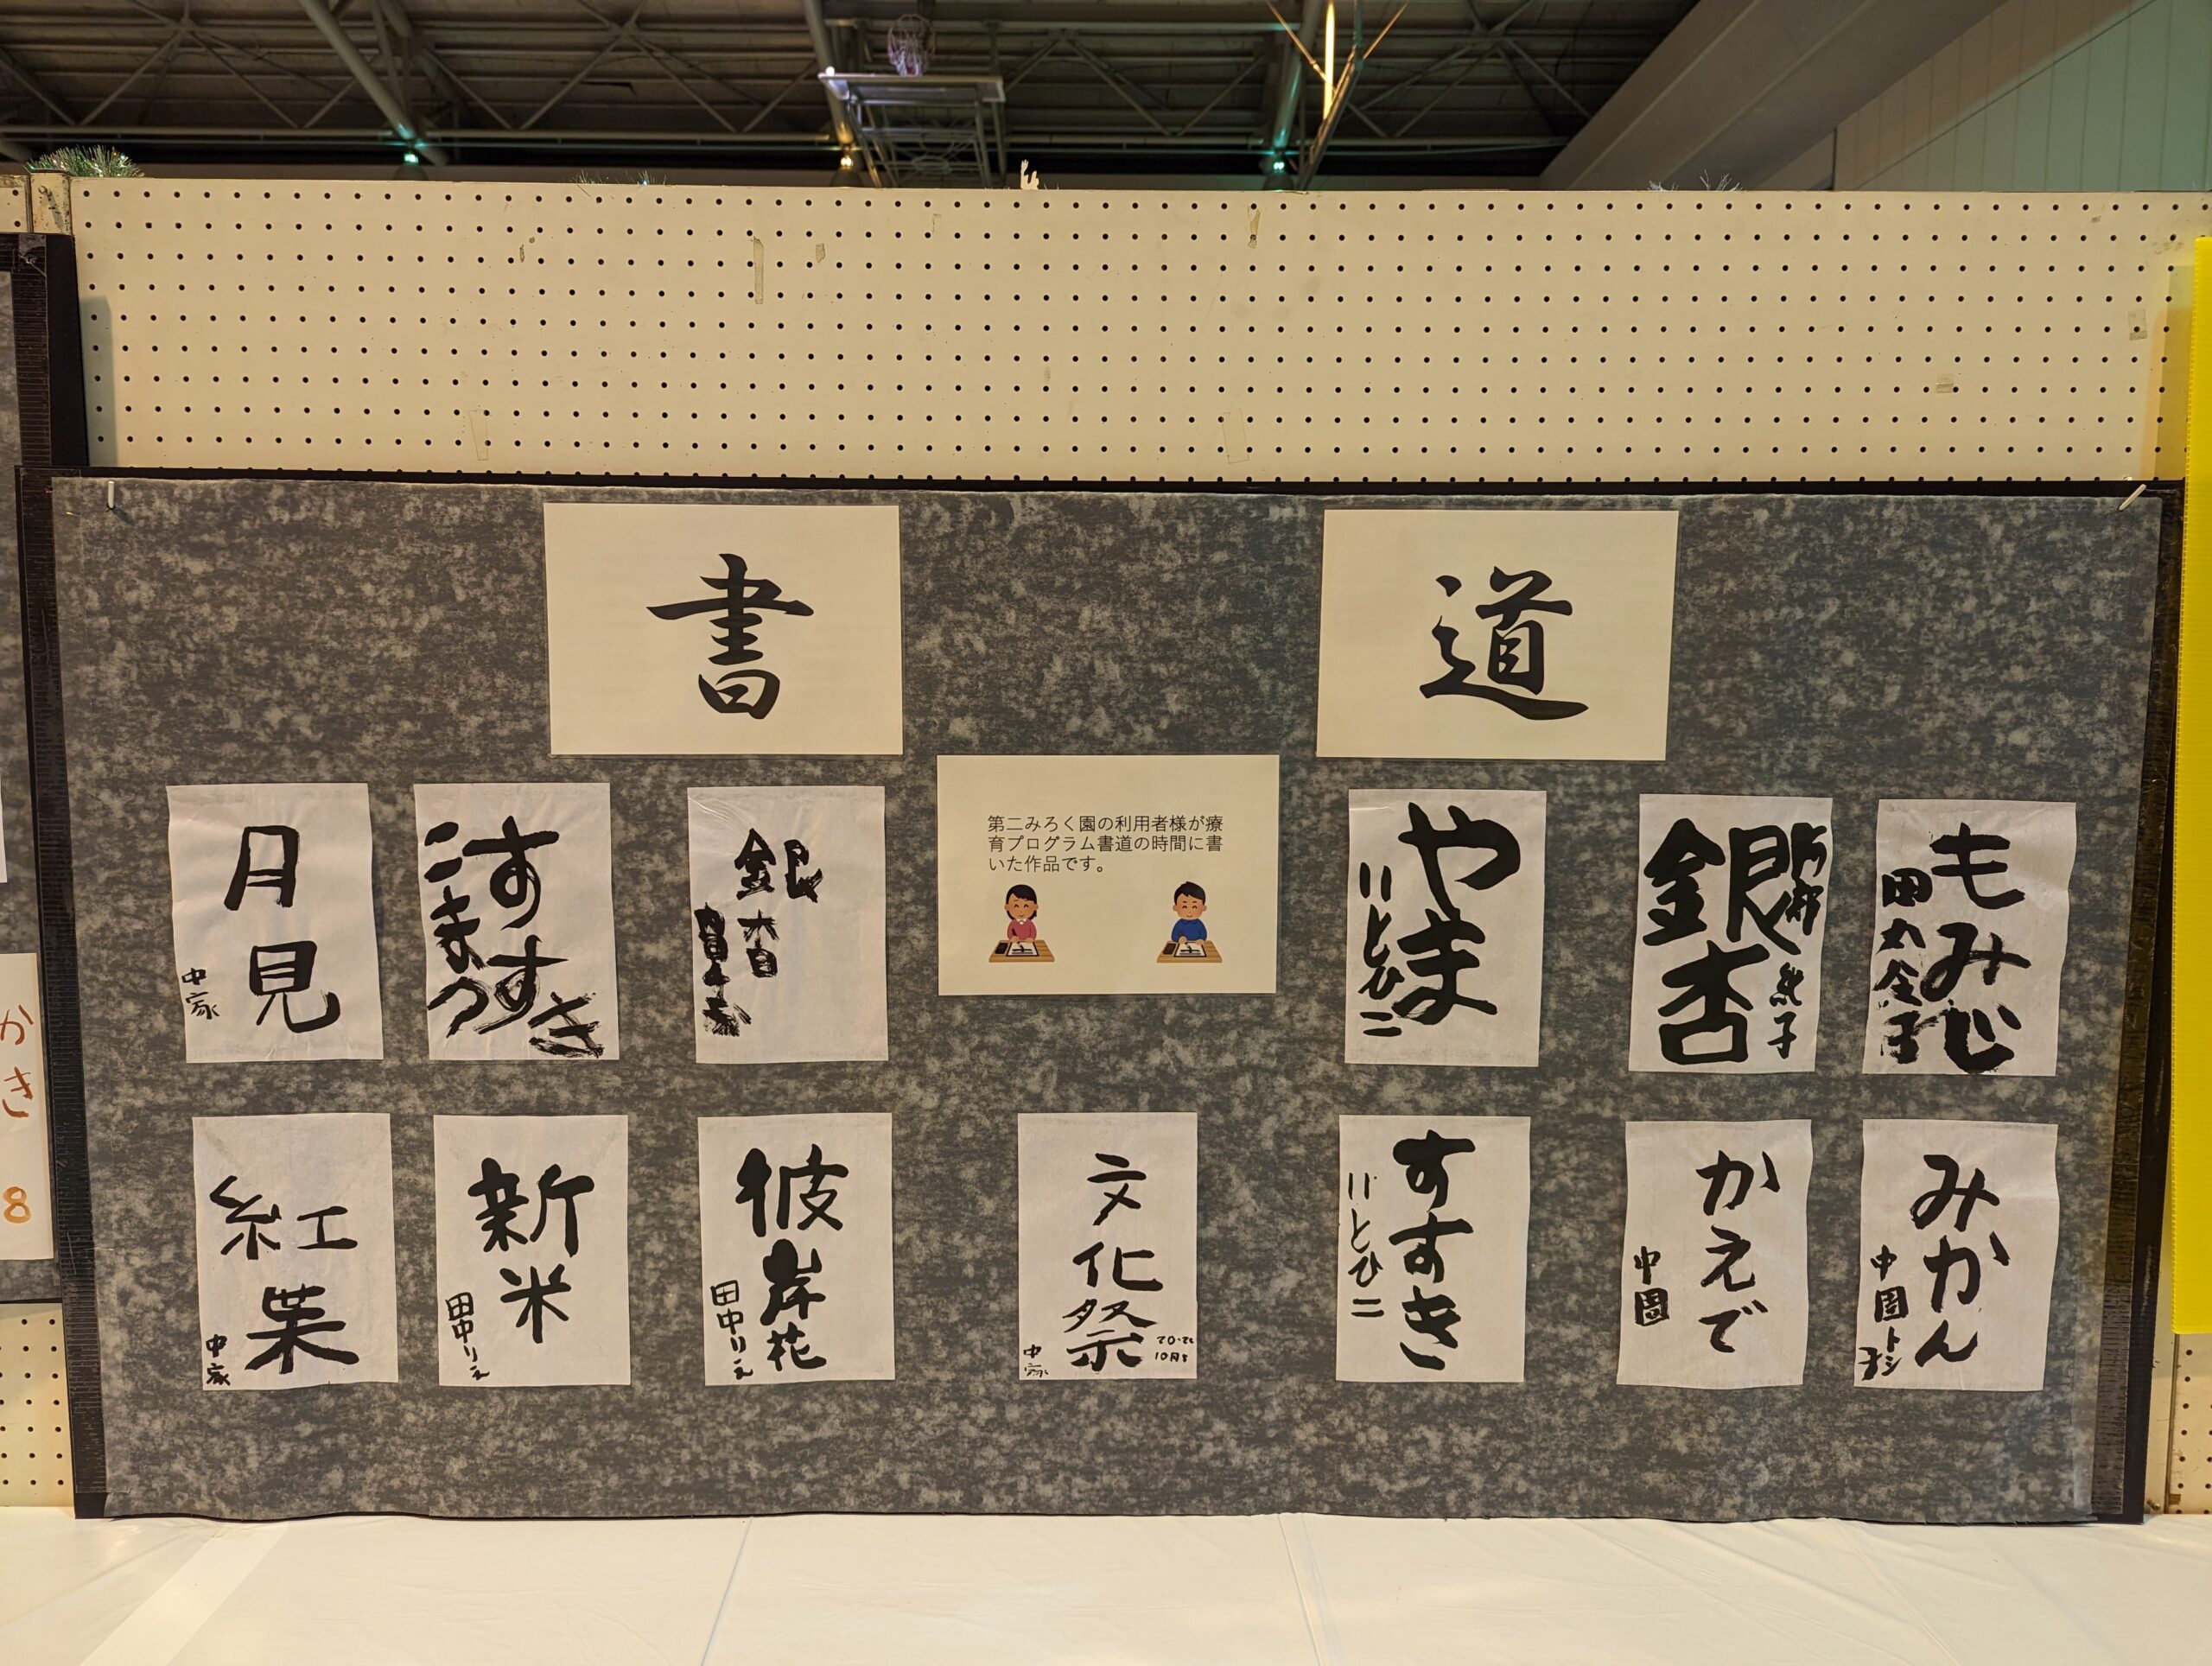 書道
第二みろく園の利用者様が療
育プログラム書道の時間に書
いた作品です。
月見
中家
すすき
こまつ
銀
やま
いとひ二
銀杏
阿部純子
もみじ
紅葉
中家
新米
田中りえ
彼岸花
田中りえ
文化祭
中家
すすき
いとひ二
かえで
中園
みかん
中園トシ子
かき
8